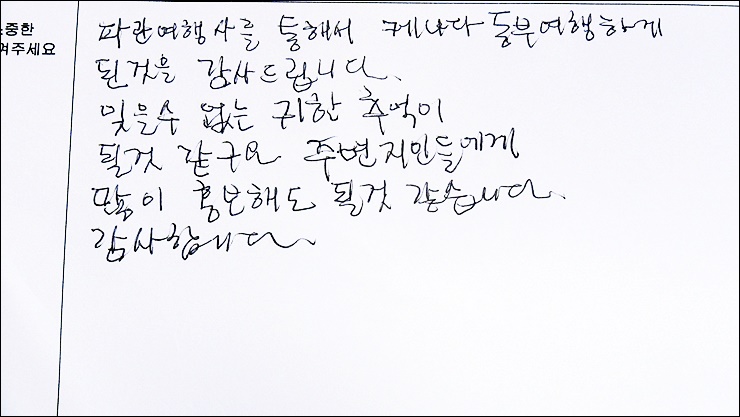 소중한
여주세요
파란여행사를 통해서 케나다 동부여행하게
된것을 감사드립니다.
잊을수 없는 귀한 추억이
될것 같구요 주변지인들에게
많이 홍보해도 될것 같습니다.
감사합니다.